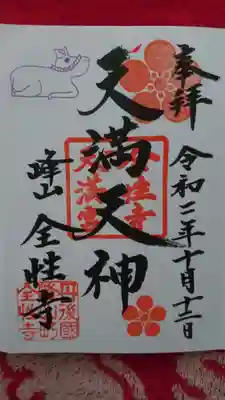 奉拝
令和二年十月十二日
天満天神
峰山 全性寺
丹後國
峰山町
全性寺